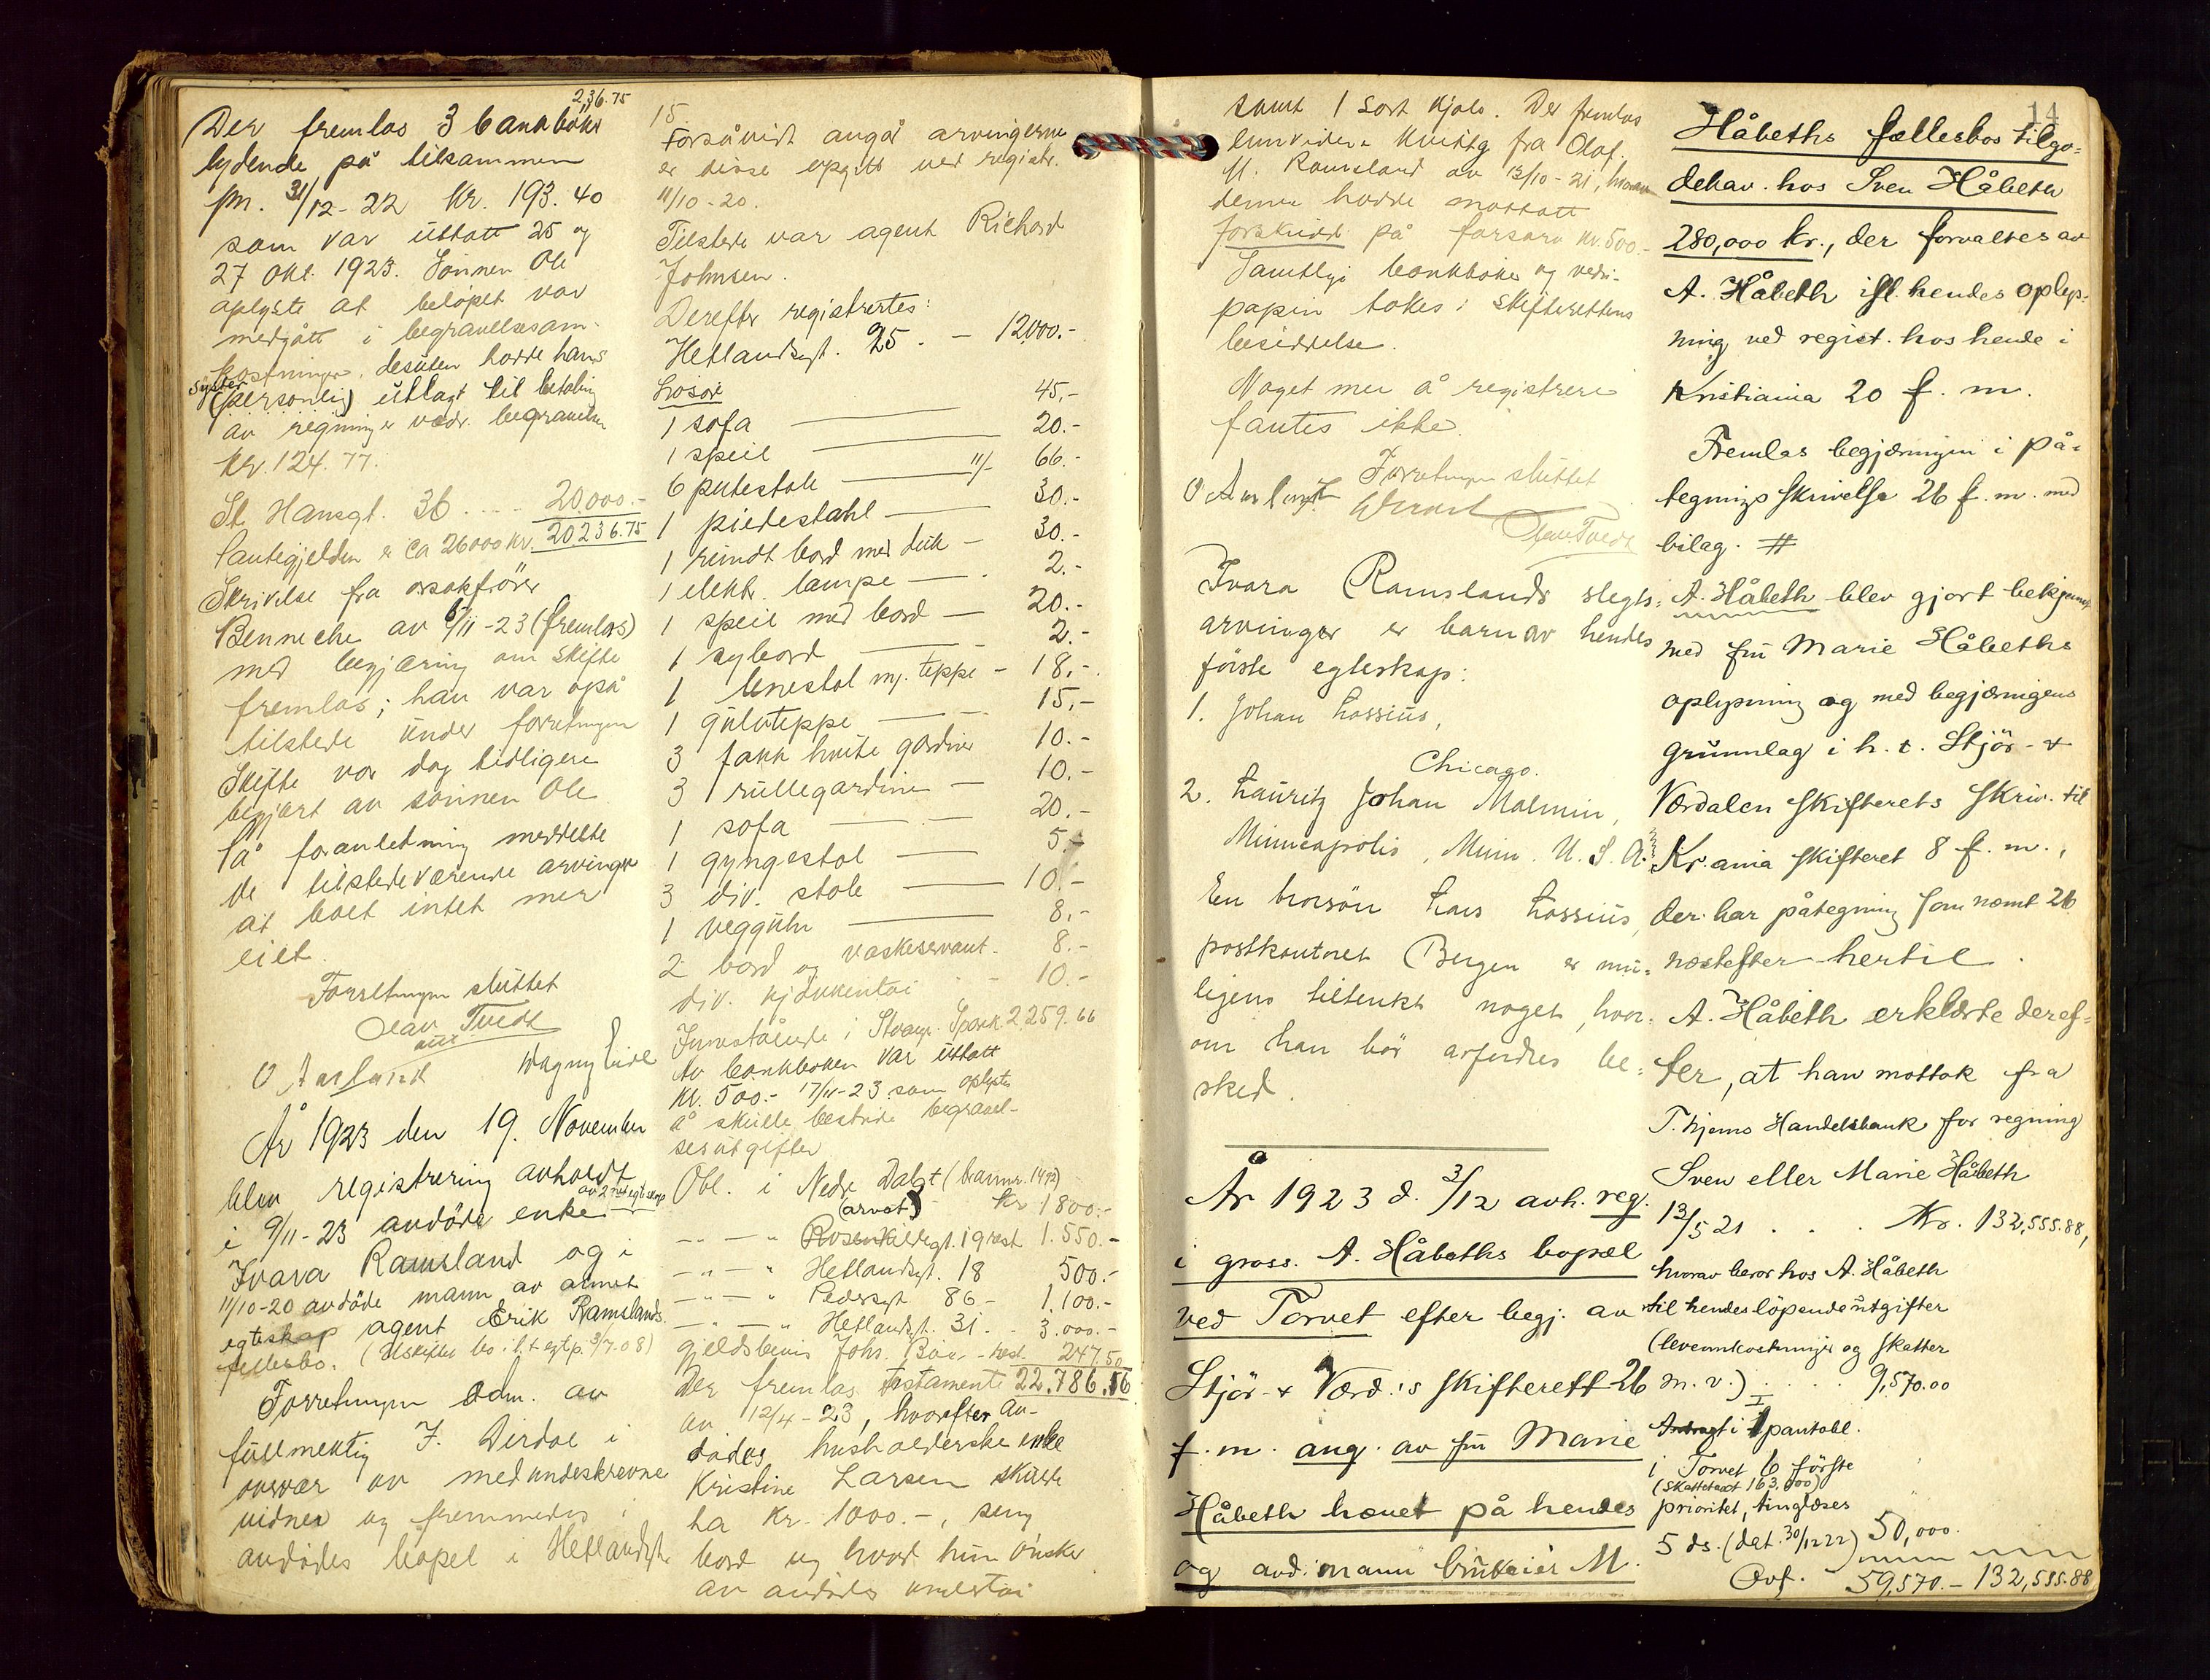 236.75
Der fremlas 3 bankbøker
lydende på tilsammen
pr. 31/12-22 kr. 193.40
som var uttatt 25 og
27 okt. 1923. Sønnen Ole
oplyste at beløpet var
medgått i begravelsesom-
kostninger, desuten hadde hans
syster
(personlig) utlagt til betaling
av regninger vedr. begravelsen
kr. 124.77.
St. Hansgt. 36 .... 20.000.-
20.236.75
Pantegjelden er ca 26000 kr.
Skrivelse fra orsakfører
Benneche av 6/11-23 (fremlas)
med begjæring om skifte
fremlas; han var også
tilstede under forretningen
Skifte var dog tidligere
begjært av sønnen Ole
På foranledning meddelte
de tilstedeværende arvinger
at boet intet mer
eiet.
Forretningen sluttet
Olav Tvedt
O Aarland
År 1923 den 19. November
blev registrering avholdt
i 9/11-23 avdøde enke av 2net egteskap
Ivara Ramsland og i
11/10-20 avdøde mann av annet
egteskap agent Erik Ramslands
fellesbo. (Uskiftet bo i h.t egtp. 3/7.08)
Forretningen adm. av
fullmektig J. Dirdal i
nærvær av medundeskrevne
vidner og fremmedes i
avdødes bopel i Hetlandsgt.
15.
Forsåvidt angår arvingerne
er disse opgitt ved registr.
11/10-20.
Tilstede var agent Richard
Johnsen.
Derefter registrertes:
Hetlandsgt. 25. - 12000.-
Løsøre
1 sofa 45.-
1 speil 20.-
6 putestole 11/- 66.-
1 piedestahl 30.-
1 rundt bord med duk - 30.-
1 elektr. lampe 2.-
1 speil med bord - 20.-
1 sybord 2.-
1 lenestol m/ teppe - 18.-
1 gulvteppe 15.-
3 fakk hvite gardiner 10.-
3 rullegardiner 10.-
1 sofa 20.-
1 gyngestol 5.-
3 div. stole 10.-
1 veggur 8.-
2 bord og vaskeservant. 8.-
div. kjøkkentøi 10.-
Innestående i Stvang. Spark. 2,259.66
Av bankboken var uttatt
kr. 500.- 17/11-23 som oplystes
å skulle bestride begravel-
sesutgifter
Obl. i Nedre Dalgt (brannr. 1492)
(arvet) kr 1800.-
-"-"- Rosenkildegt. 19 rest 1.550.-
-"-"- Hetlandsgt. 18 500.-
-"-"- Pedersgt 86 - 1.100.-
-"-"- Hetlandsgt. 31 .. 3.000.-
gjeldsbevis Johs. Bøe - rest 247.50
Der fremlas testamente 22.786.16
av 12/4-23, hvorefter av-
dødes husholderske enke
Kristine Larsen skulde
ha kr. 1000.-, seng
bord og hvad hun ønsker
av avdødes undertøi
samt 1 sort kjole. Der fremlas
ennvidere kvittg fra Olaf
M. Ramsland av 13/10-21, hvorav
denne hadde mottatt
forskudd på farsarv kr. 500.-
Samtlige bankbøker og verdi-
papir tokes i skifterettens
besiddelse.
Noget mer å registrere
fantes ikke.
Forretningen sluttet
O Aarland
Olav Tvedt
Ivara Ramslands slegts-
arvinger er barn av hendes
første egteskap:
1. Johan Lossius,
Chicago.
2. Lauritz Johan Malmin,
Minneapolis, Minn. U.S.A.
En brorsøn Lars Lossius,
postkontoret Bergen er mu-
ligens tiltenkt noget, hvor-
om han bør avfordres be-
sked.
År 1923 d. 3/12 avh. reg.
i gross. A. Håbeths bopæl
ved Torvet efter begj. av
Stjør- & Værd.'s skifterett 26
f. m. ang. av fru Marie
Håbeth hævet på hendes
og avd. mann bruksier M.
14
Håbeths fællesbos tilgo-
dehav. hos Sven Håbeth
280,000 kr., der forvaltes av
A. Håbeth ifl. hendes oplys-
ning ved regist. hos hende i
Kristiania 20 f. m.
Fremlas begjæringen i på-
tegnings skrivelse 26 f. m. med
bilag. #
A. Håbeth blev gjort bekjent
med fru Marie Håbeths
oplysning og med begjæringens
grunnlag i h. t. Stjør- &
Værdalen skifterets skriv. til
Kr.ania skifteret 8 f. m.,
der har påtegning som nævnt 26
næstefter hertil.
A. Håbeth erklærte deref-
ter, at han mottok fra
T.hjems Handelsbank for regning
Sven eller Marie Håbeth
13/5 21 . . . Kr. 132,555.88,
hvorav beror hos A. Håbeth
til hendes løpende utgifter
(leveomkostninger og skatter
m. v.) . . . . 9,570.00
Anbragt i 1 pantobl.
i Torvet 6 første
(skattetaxt 163,000)
prioritet, tinglæses
5 ds. (dat. 30/12 22) 50,000.
Ovf. 59,570.- 132,555.88